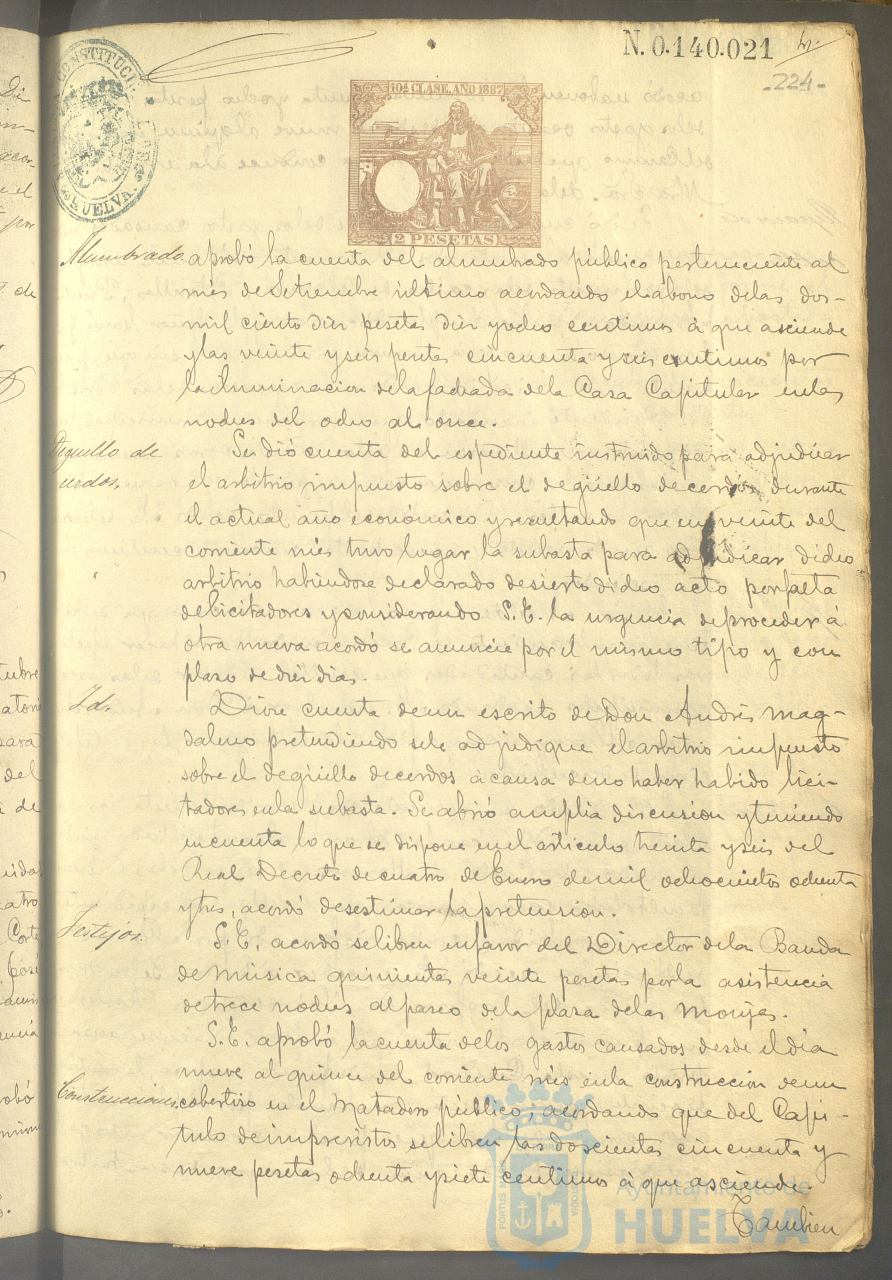 N. 0.140.021
-224-
CONSTITUCI
HUELVA
10ª CLASE. AÑO 1887
2 PESETAS
Alumbrado. aprobó la cuenta del alumbrado público perteneciente al
més de Setiembre último acordando el abono de las dos-
mil ciento diez pesetas diez y ocho centimos á que asciende
y las veinte y seis pesetas cincuenta y seis centimos por
la iluminacion de la fachada de la Casa Capitular en las
noches del ocho al once.
Deguello de
cerdos,
Se dió cuenta del espediente instruido para adjudicar
el arbitrio impuesto sobre el degüello de cerdos durante
el actual año económico y resultando que en veinte del
corriente més tuvo lugar la subasta para adjudicar dicho
arbitrio habiendose declarado desierto dicho acto por falta
de licitadores y considerando S.E. la urgencia de proceder á
otra nueva acordó se anuncie por el mismo tipo y con
plazo de diez dias.
Id.
Diose cuenta de un escrito de Don Andrés Mag-
daleno pretendiendo se le adjudique el arbitrio impuesto
sobre el degüello de cerdos á causa de no haber habido lici-
tadores en la subasta. Se abrió amplia discusion y teniendo
en cuenta lo que se dispone en el articulo treinta y seis del
Real Decreto de cuatro de Enero de mil ochocientos ochenta
y tres, acordó desestimar la pretension.
Festejos.
S.E. acordó se libren en favor del Director de la Banda
de música quinientas veinte pesetas por la asistencia
de trece noches al paseo de la plaza de las Monjas.
S.E. aprobó la cuenta de los gastos causados desde el dia
nueve al quince del corriente més en la construccion de un
Construcciones. cobertizo en el Matadero público; acordando que del Capi-
tulo de imprevistos se libren las doscientas cincuenta y
nueve pesetas ochenta y siete centimos á que asciende.
Tambien
Ayuntamiento de
HUELVA